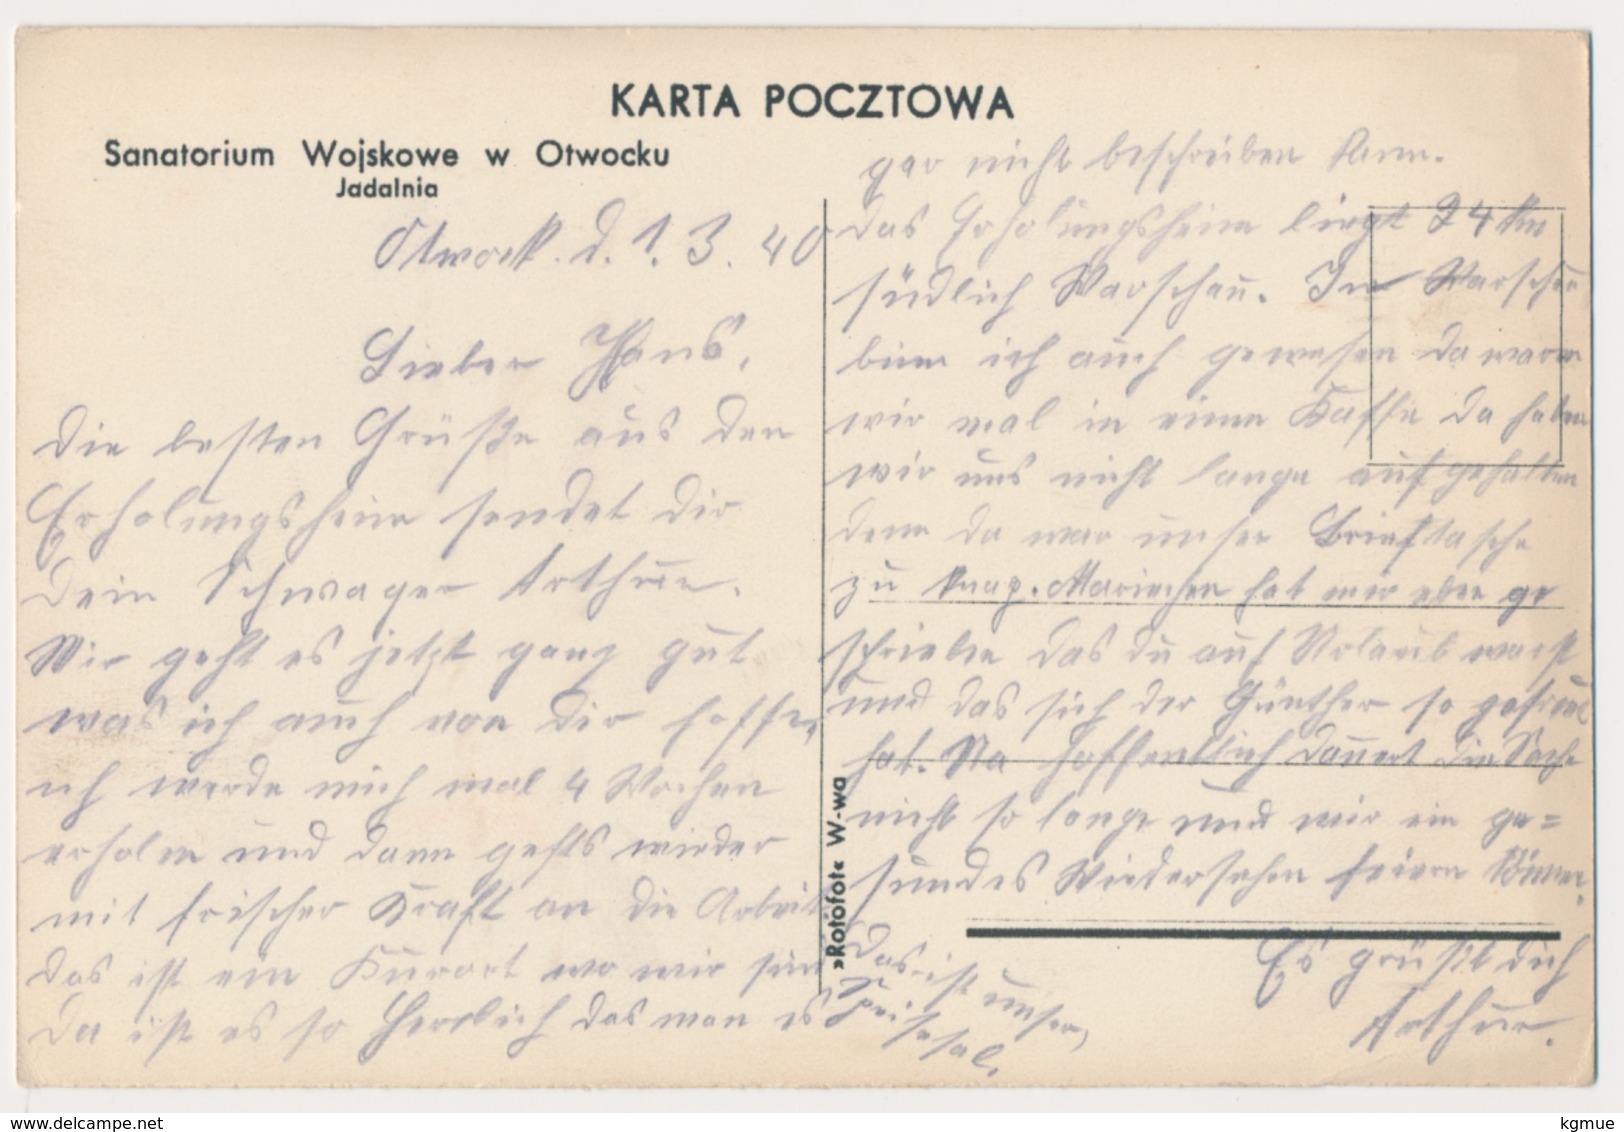 KARTA POCZTOWA
Sanatorium Wojskowe w Otwocku
Jadalnia
Otwock. d. 1. 3. 40
Lieber Hans,
die besten Grüße aus den
Erholungsheim sendet dir
dein Schwager Arthur.
Mir geht es jetzt ganz gut
was ich auch von dir hoffe,
ich werde mich mal 4 Wochen
erholen und dann gehts wieder
mit frischer Kraft an die Arbeit
das ist ein Kurort wo wir sind
da ist es so herrlich das man es
gar nicht beschreiben kann.
das Erholungsheim liegt 24 km
südlich Warschau. In Warschau
binn ich auch gewesen da waren
wir mal in einen Kaffe da haben
wir uns nicht lange aufgehalten
denn da war unser Brieftasche
zu knap. Mariechen hat mir eben ge
schrieben das du auf Urlaub warst
und das sich der Günther so gefreut
hat. Na hoffentlich dauert die Sache
nicht so lange und wir ein ge=
sundes Wiedersehen feiern können.
Es grüßt dich
Arthur.
das ist unser,
Speisesal.
»Rotofot« W-wa
https://www.delcampe.net
kgmue